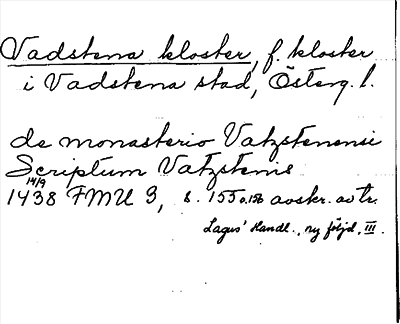 Vadstena kloster, f. kloster
i Vadstena stad, Österg. l.
de monasterio Vatzstenensi
Scriptum Vatzstenis
14/9
1438 FMU 3, s. 155 o. 156 avskr. av tr.
Lagus' Handl., ny följd, III.